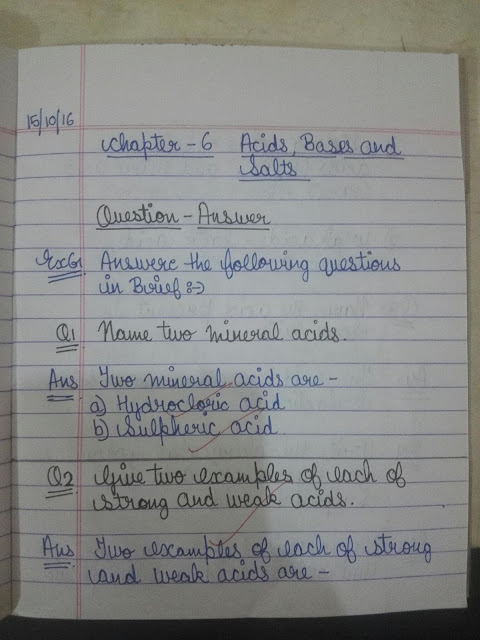 15/10/16
Chapter - 6 Acids, Bases and
Salts
Question - Answer
Ex G1 Answere the following questions
in Brief :->
Q1 Name two mineral acids.
Ans Two mineral acids are -
a) Hydrocloric acid
b) Sulpheric acid
Q2 Give two examples of each of
strong and weak acids.
Ans Two examples of each of strong
and weak acids are -